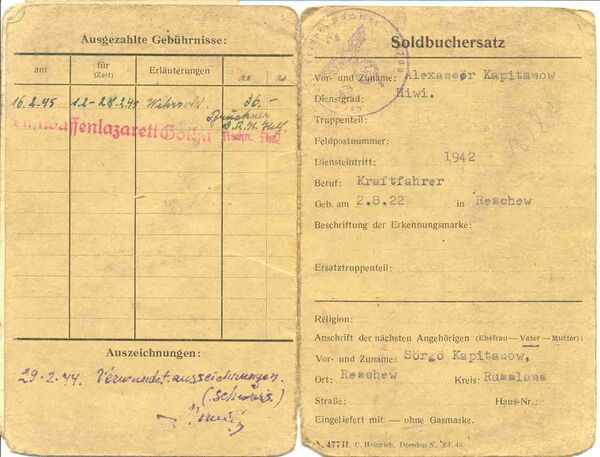 Ausgezahlte Gebührnisse:
am für (Zeit) Erläuterungen RM Rpf
16.2.45 1.2.-28.2.45 Wehrsold. 36.-
Luftwaffenlazarett Gotha
Rechn. Fhr.
Auszeichnungen:
29.2.44. Verwundetauszeichnungen.
(Schwarz.)
Soldbuchersatz
Vor- und Zuname: Alexander Kapitanow
Dienstgrad: Hiwi.
Truppenteil:
Feldpostnummer:
Diensteintritt: 1942
Beruf: Kraftfahrer
Geb. am 2.8.22 in Reschew
Beschriftung der Erkennungsmarke:
Ersatztruppenteil:
Religion:
Anschrift der nächsten Angehörigen (Ehefrau — Vater — Mutter):
Vor- und Zuname: Sörgö Kapitanow,
Ort: Reschew Kreis: Russland
Straße: Haus-Nr.:
Eingeliefert mit — ohne Gasmaske.
A. 477 II. C. Heinrich, Dresden N.